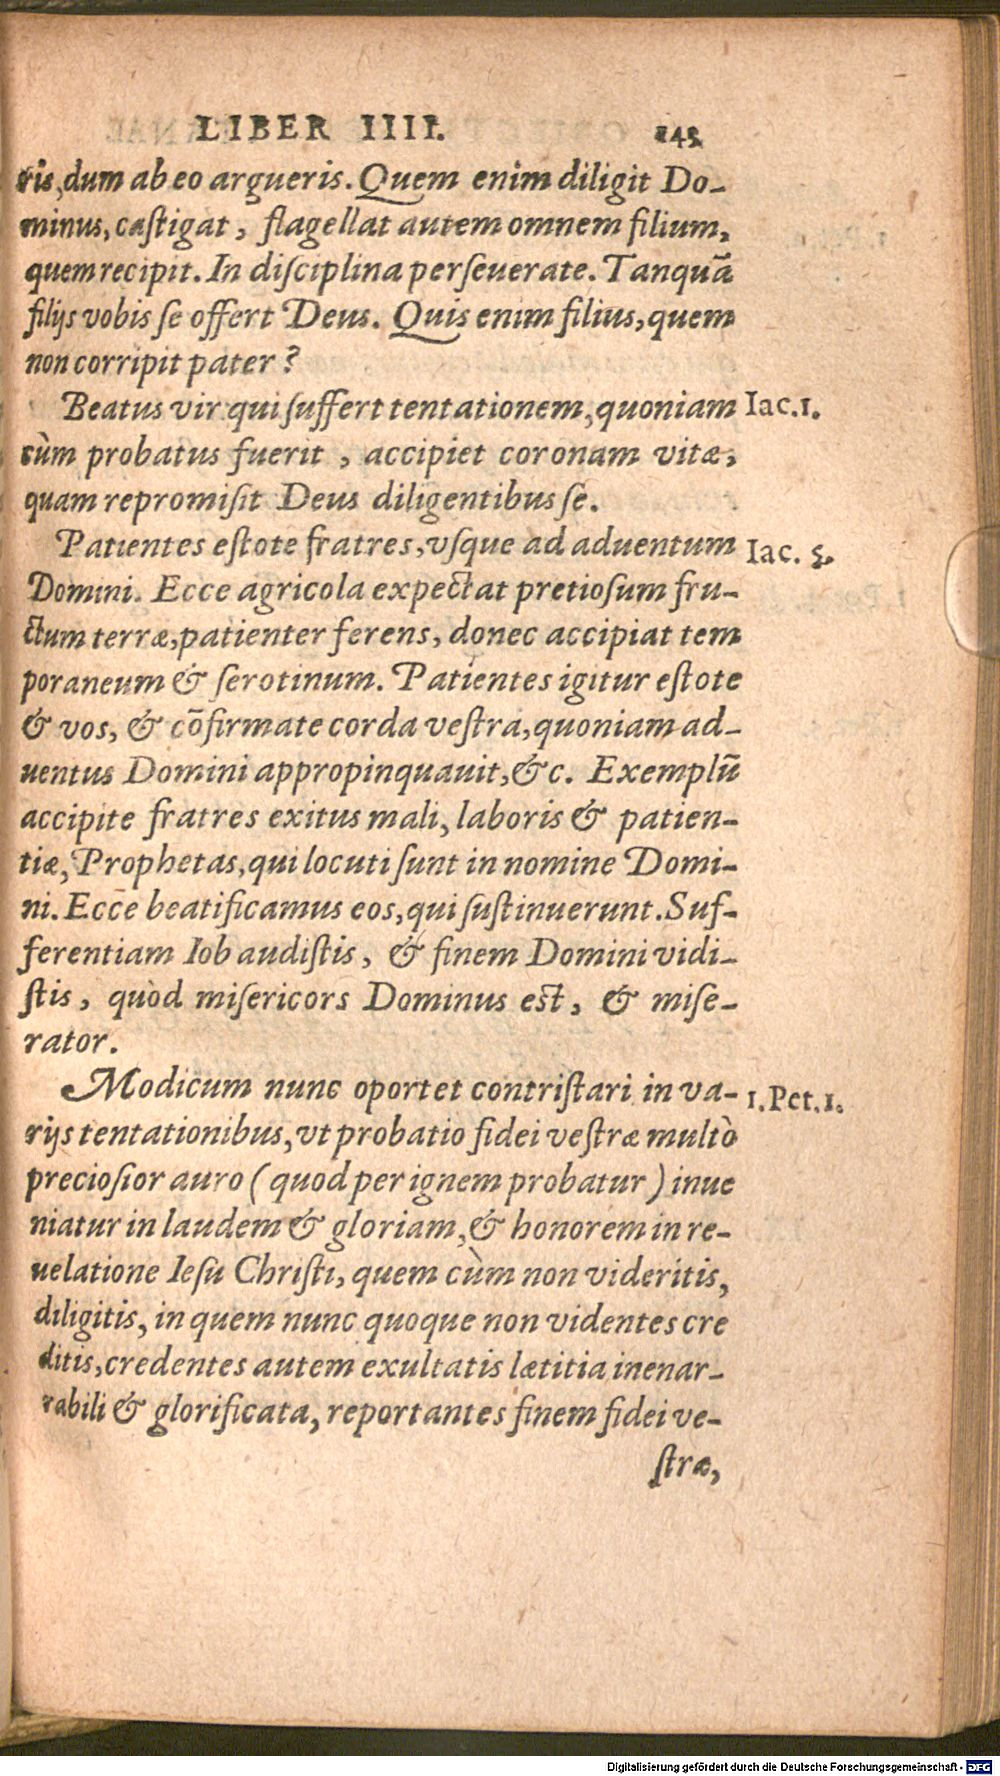 LIBER IIII. 145
ris, dum ab eo argueris. Quem enim diligit Do-
minus, castigat, flagellat autem omnem filium,
quem recipit. In disciplina perseuerate. Tanquã
filijs vobis se offert Deus. Quis enim filius, quem
non corripit pater?
Beatus vir qui suffert tentationem, quoniam Iac. 1.
cùm probatus fuerit, accipiet coronam vitæ,
quam repromisit Deus diligentibus se.
Patientes estote fratres, vsque ad aduentum Iac. 5.
Domini. Ecce agricola expectat pretiosum fru-
ctum terræ, patienter ferens, donec accipiat tem
poraneum & serotinum. Patientes igitur estote
& vos, & cõfirmate corda vestra, quoniam ad-
uentus Domini appropinquauit, &c. Exemplũ
accipite fratres exitus mali, laboris & patien-
tiæ, Prophetas, qui locuti sunt in nomine Domi-
ni. Ecce beatificamus eos, qui sustinuerunt. Suf-
ferentiam Iob audistis, & finem Domini vidi-
stis, quòd misericors Dominus est, & mise-
rator.
Modicum nunc oportet contristari in va- 1. Pet. 1.
rijs tentationibus, vt probatio fidei vestræ multò
preciosior auro (quod per ignem probatur) inue
niatur in laudem & gloriam, & honorem in re-
uelatione Iesu Christi, quem cùm non videritis,
diligitis, in quem nunc quoque non videntes cre
ditis, credentes autem exultatis lætitia inenar-
rabili & glorificata, reportantes finem fidei ve-
stræ,
Digitalisierung gefördert durch die Deutsche Forschungsgemeinschaft - DFG